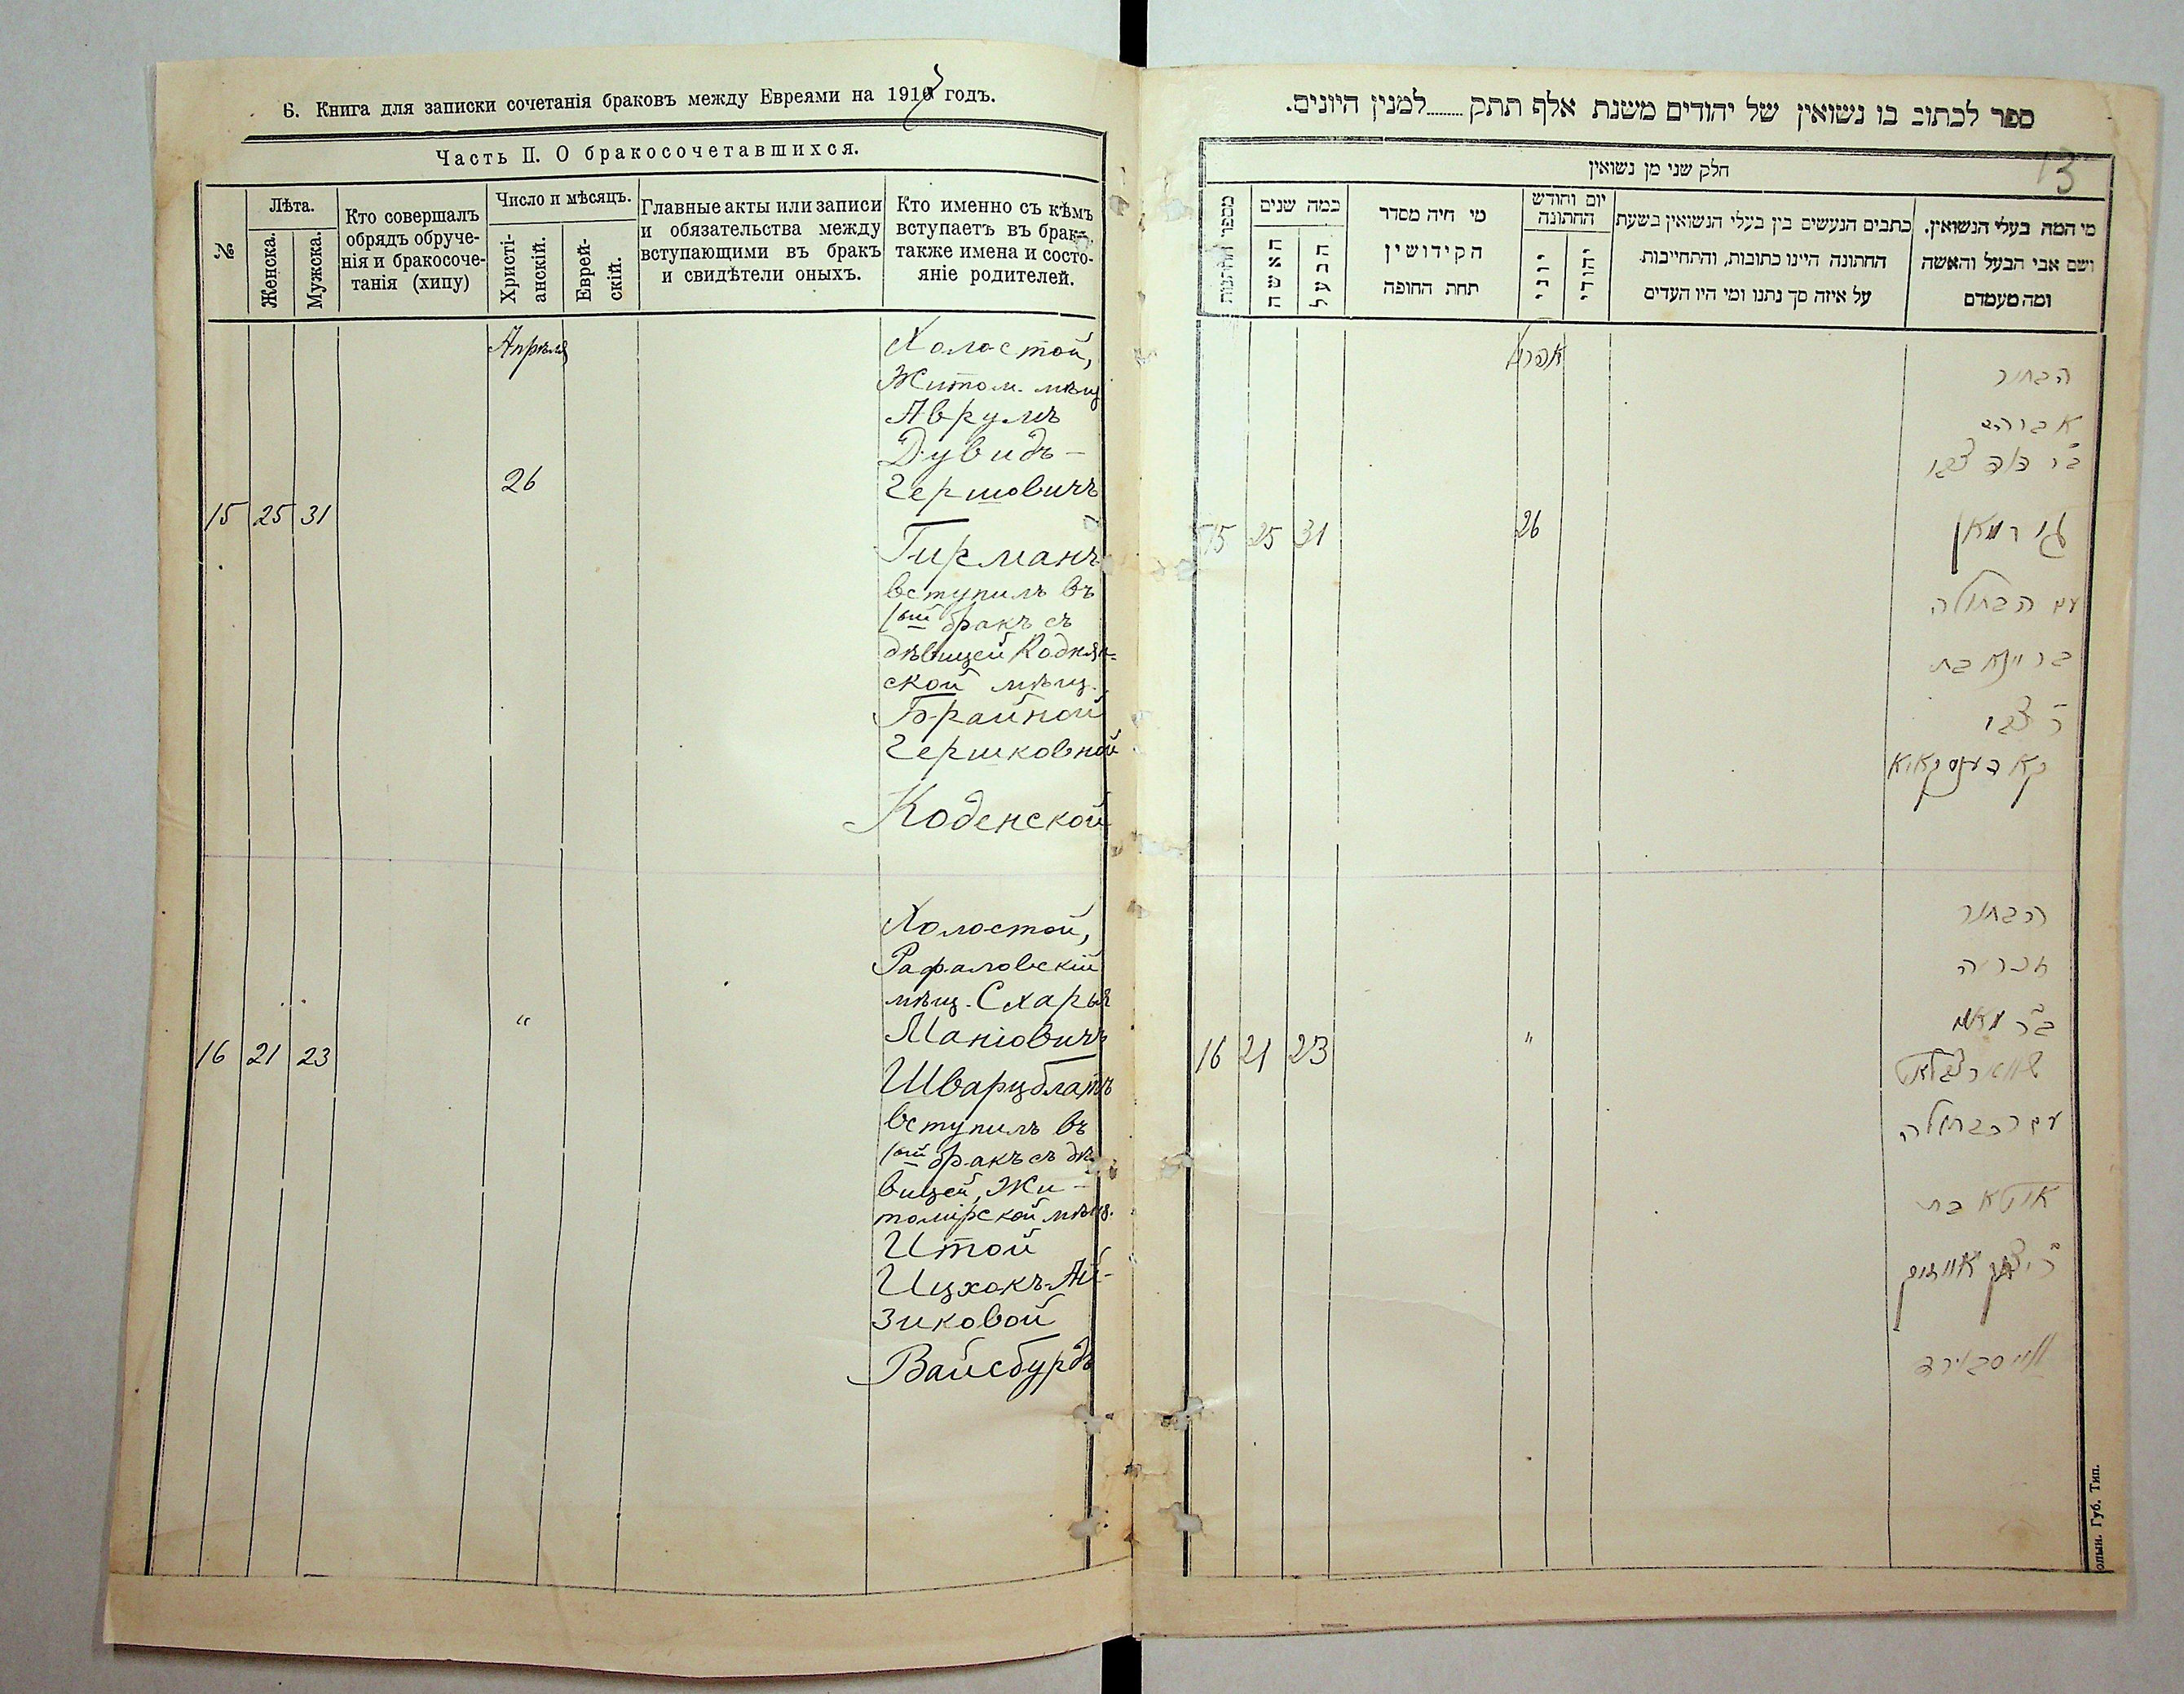 6. Книга для записки сочетанія браковъ между Евреями на 1917 годъ.
Часть II. О бракосочетавшихся.
№
Лѣта.
Женска.
Мужска.
Кто совершалъ
обрядъ обруче-
нія и бракосоче-
танія (хипу)
Число и мѣсяцъ.
Христі-
анскій.
Еврей-
скій.
Главные акты или записи
и обязательства между
вступающими въ бракъ
и свидѣтели оныхъ.
Кто именно съ кѣмъ
вступаетъ въ бракъ,
также имена и состо-
яніе родителей.
Апрѣля
Холостой,
Житом. мѣщ
Аврумъ
Дувидъ-
26
Гершовичъ
15 25 31
Гирманъ
вступилъ въ
1ый бракъ съ
дѣвицей Коднян-
ской мѣщ.
Брайной
Гершковной
Коденской
Холостой,
Рафаловскій
мѣщ. Схарья
"
Маніовичъ
16 21 23
Шварцблатъ
вступилъ въ
1ый бракъ съ дѣ
вицей, Жи-
томірской мѣщ.
Итой
Ицхокъ-Ай-
зиковой
Вайсбурдъ
ספר לכתוב בו נשואין של יהודים משנת אלף תתק........למנין היונים.
13
חלק שני מן נשואין
מי המה בעלי הנשואין.
ושם אבי הבעל והאשה
ומה מעמדם
כתבים הנעשים בין בעלי הנשואין בשעת
החתונה היינו כתובות, והתחייבות
על איזה סך נתנו ומי היו העדים
יום וחודש
החתונה
יהודי
יוני
מי היה מסדר
הקידושין
תחת החופה
כמה שנים
הבעל
האשה
מספר החתונות
הבחור
אברהם
ב״ר דוד צבי
15 25 31 26
גירמאן
עם הבתולה
בריינא בת
ר׳ צבי
קאדענסקאיא
הבחור
זכריה
ב״ר
16 21 23 "
שווארצבלאט
עם הבתולה
איטא בת
ר׳ יצחק אייזיק
ווייסבורד
олын. Губ. Тип.